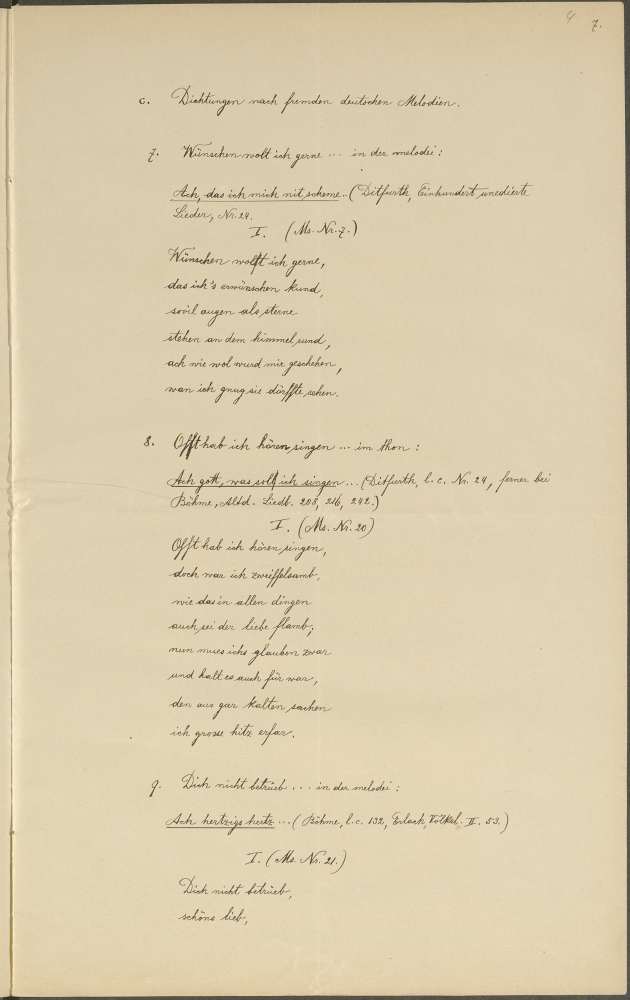 4 7.
c. Dichtungen nach fremden deutschen Melodien.
7. Wünschen wolt ich gerne ... in der melodei:
Ach, das ich mich nit scheme.. (Ditfurth, Einhundert unedierte
Lieder, Nr. 24.
I. (Ms. Nr. 7.)
Wünschen wolt ich gerne,
das ich's erwünschen kund,
sovil augen als sterne
stehen an dem himmel rund,
ach wie wol wurd mir geschehen,
wan ich gnug sie dörffte sehen.
8. Offt hab ich hören singen ... im thon:
Ach gott, was soll ich singen ... (Ditfurth, l. c. Nr. 24, ferner bei
Böhme, Altd. Liedb. 208, 216, 242.)
I. (Ms. Nr. 20)
Offt hab ich hören singen,
doch war ich zweiffelsamb,
wie das in allen dingen
auch sei der liebe flamb;
nun mues ichs glauben zwar
und halt es auch für war,
den aus gar kalten sachen
ich grosse hitz erfar.
9. Dich nicht betrüeb ... in der melodei:
Ach hertzigs hertz ... (Böhme, l. c. 132, Erlach, Volksl. II. 53.)
I. (Ms. Nr. 21.)
Dich nicht betrüeb,
schöns lieb,